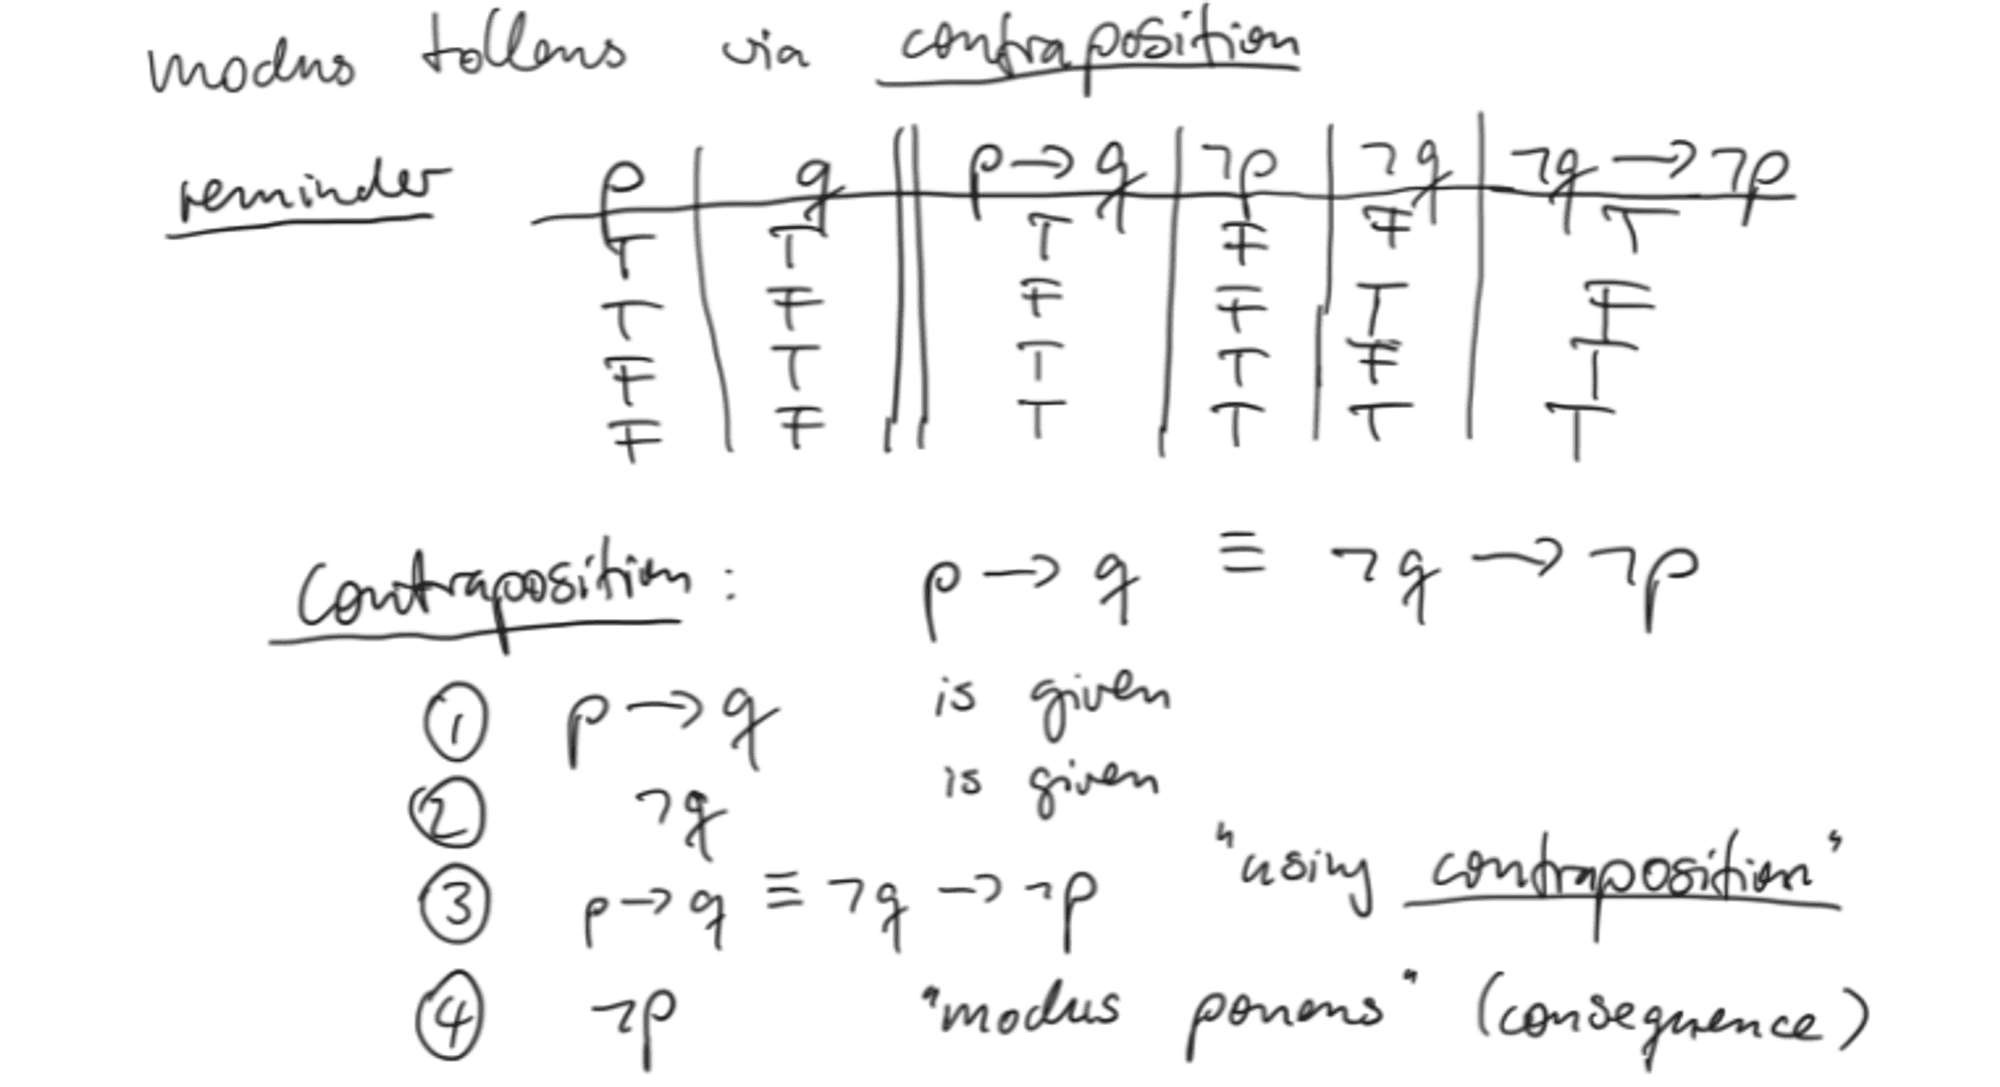 modus tollens via contraposition
reminder p q p → q ¬p ¬q ¬q → ¬p
T T T F F T
T F F F T F
F T T T F T
F F T T T T
Contraposition : p → q ≡ ¬q → ¬p
① p → q is given
② ¬q is given
③ p → q ≡ ¬q → ¬p "using contraposition"
④ ¬p "modus ponens" (consequence)